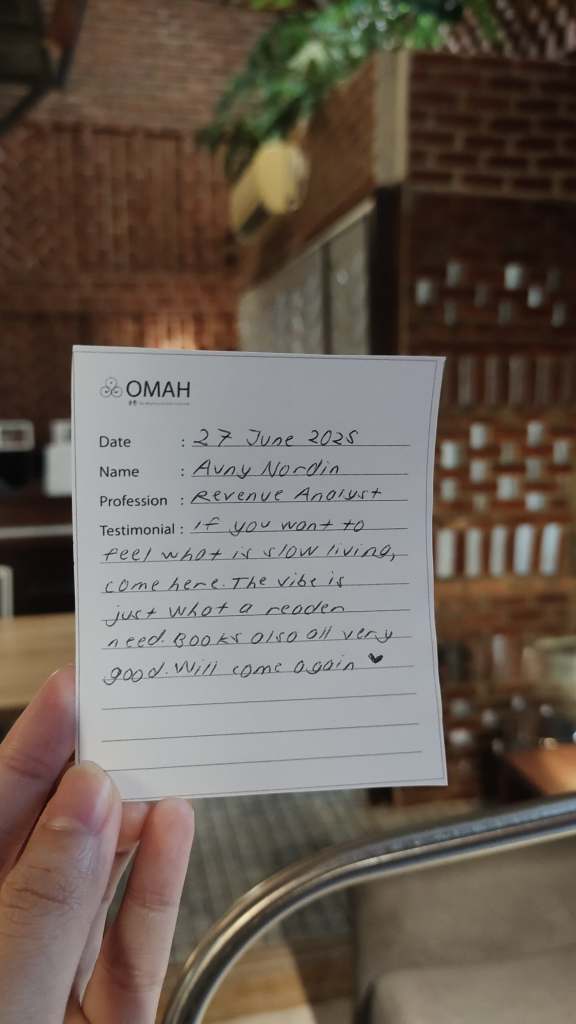 OMAH
Date : 27 June 2025
Name : Avny Nordin
Profession : Revenue Analyst
Testimonial : If you want to
feel what is slow living,
come here. The vibe is
just what a reader
need. Books also all very
good. Will come again ♥